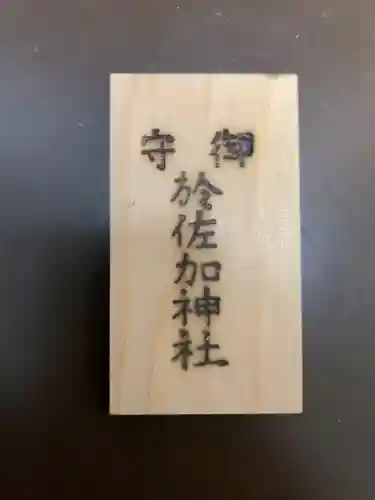 御守
於佐加神社